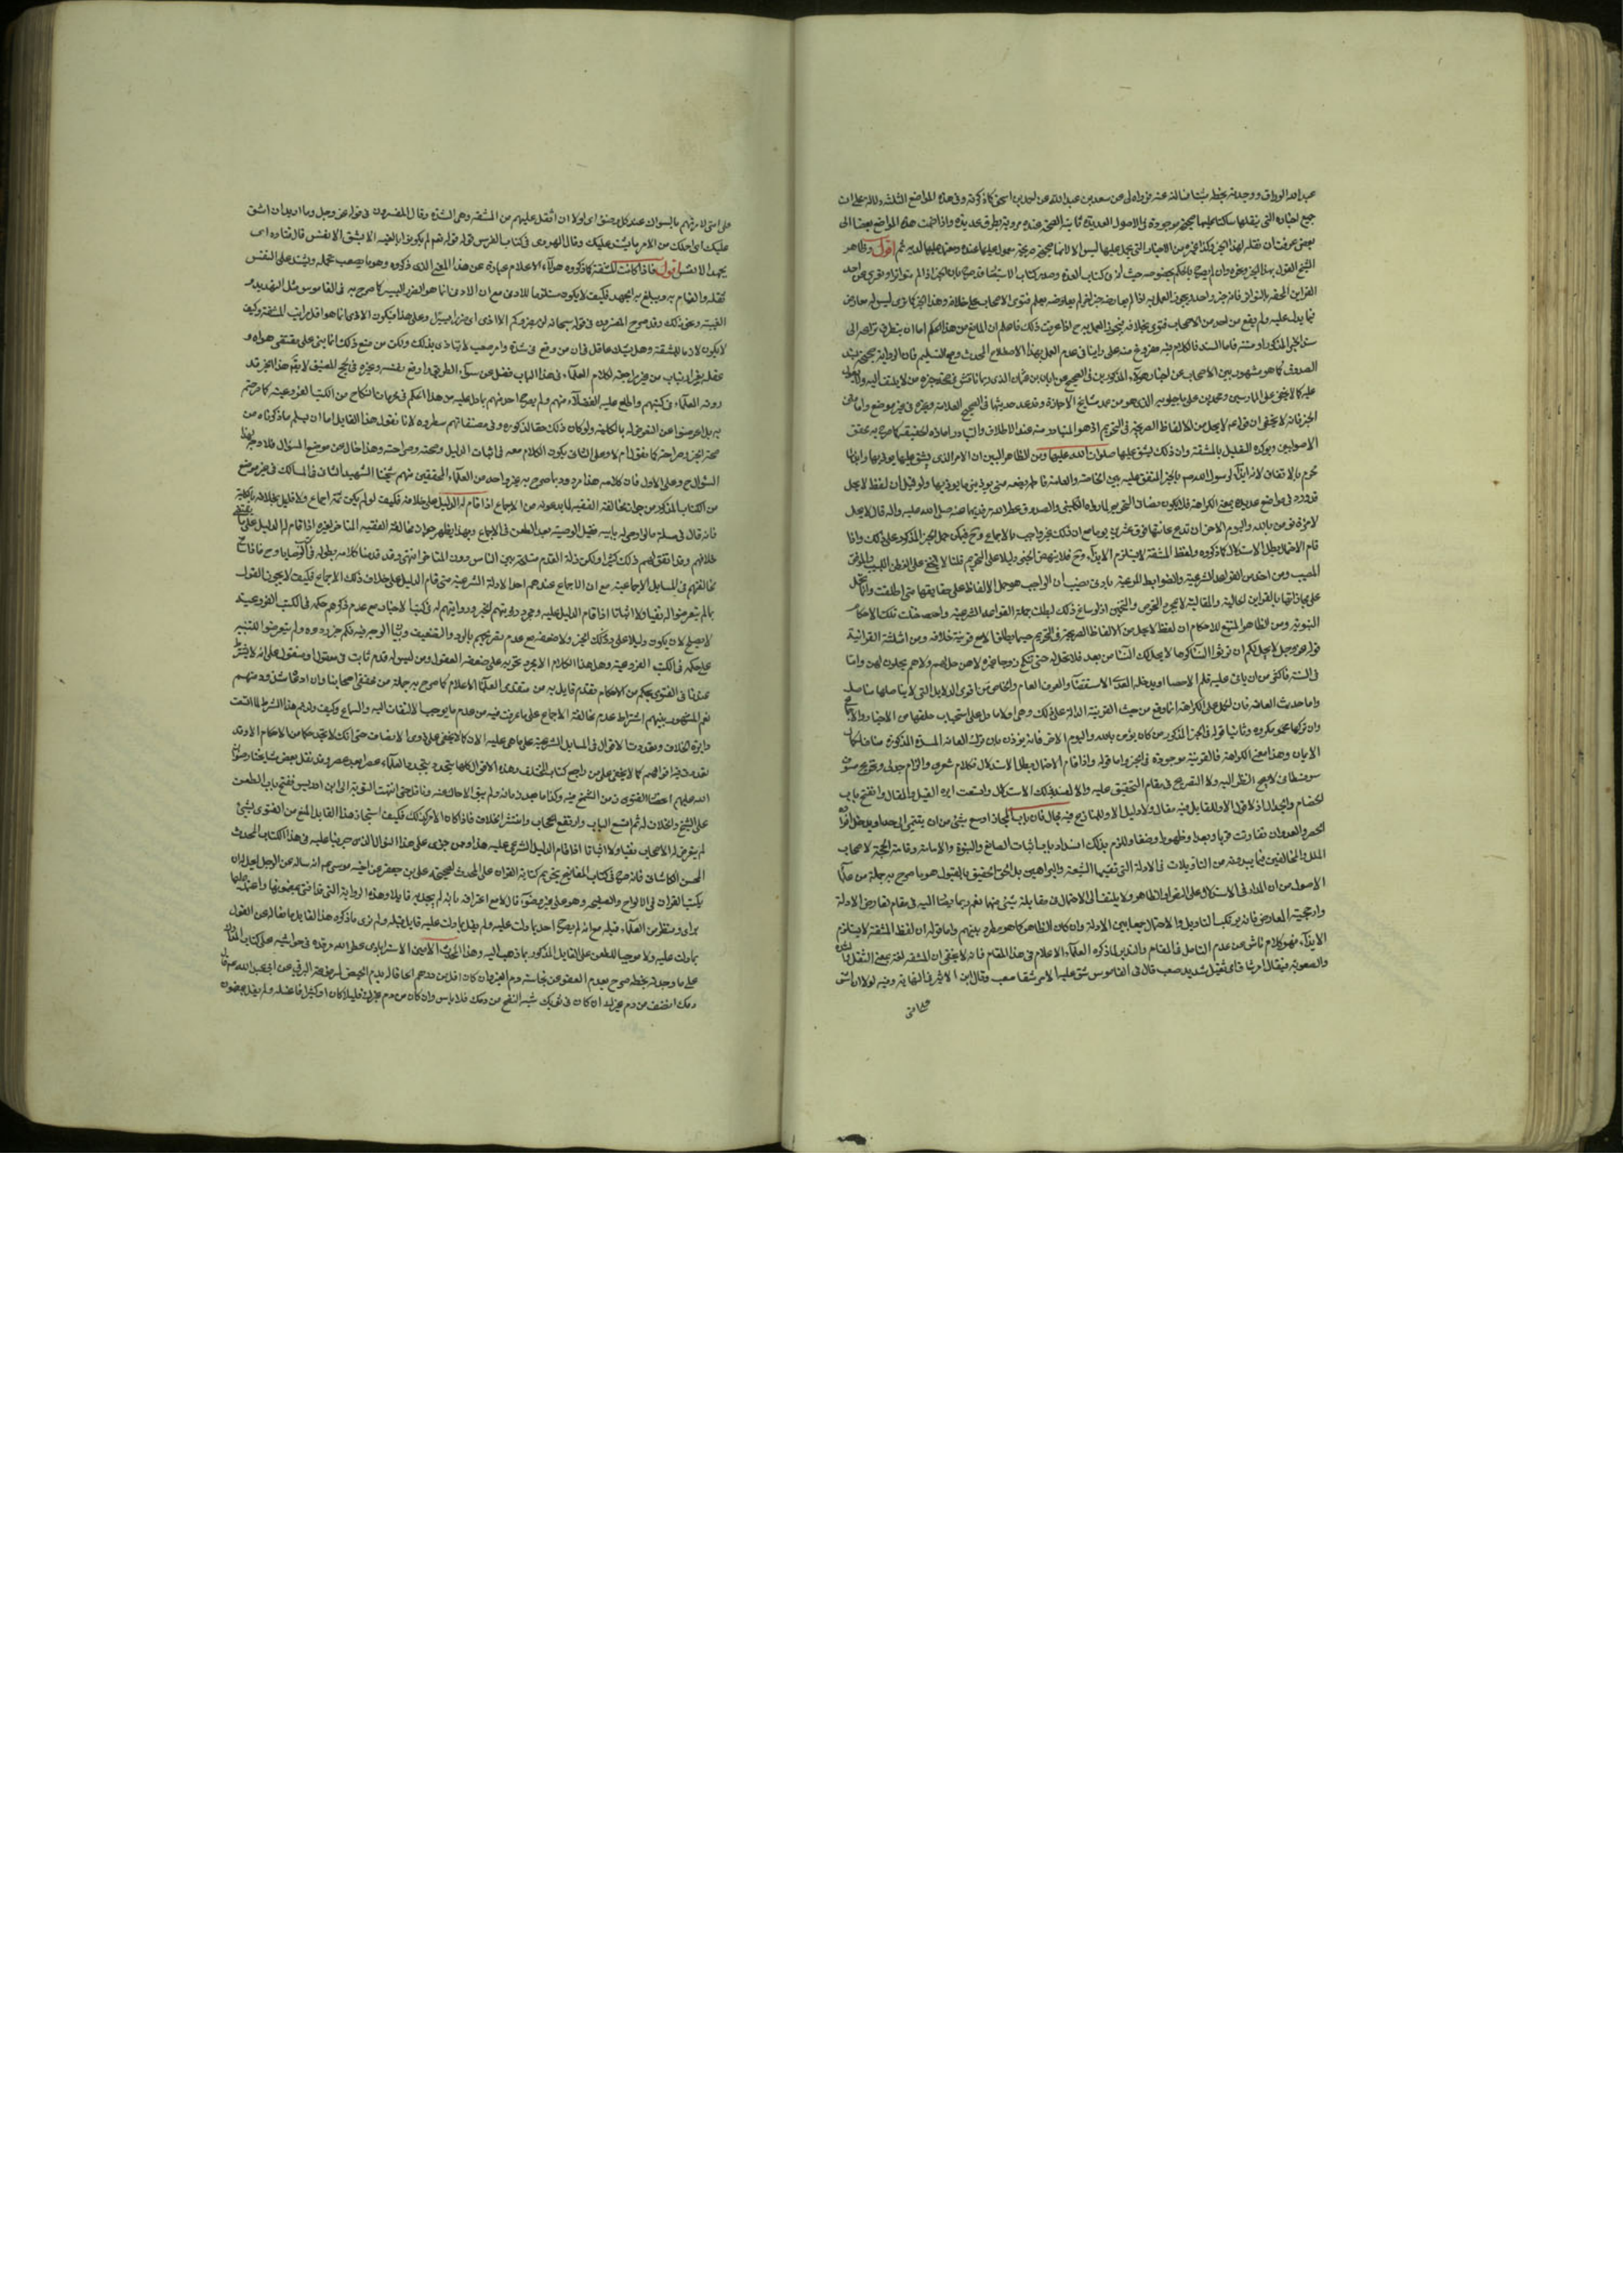 عبد الله الوراق ووجدته بخطه مثبتا فسالته عنه فرواه لى عن سعد بن عبد الله عن احمد بن اسحق كما ذكرته وفى هذه المواضع الثلثة دلالة على ان
جميع اخباره التى ينقلها ساكتا عليها صحيحة موجودة فى الاصول العديدة ثابتة الصحة عنده مروية بطرق عديدة واذا ضمت هذه المواضع بعضها الى
بعض عرفت ان نقله لهذا الخبر وكذا غيره من الاخبار التى يدل عليها ليس الا لانها صحيحة صريحة معمول عليها عنده ومعتمد عليها لديه ثم اقول وظاهر
الشيخ القول بهذا الخبر وغيره وان لم يصرح بالحكم بخصوصه حيث انه فى كتاب العدة وصدر كتاب الاستبصار قد صرح بان الخبر اذا لم يتواتر او تعرى من احد
القراين الملحقة بالتواتر فانه خبر واحد ويجوز العمل به اذا لم يعارضه خبر اخر ولم يعلم فتوى الاصحاب على خلافه وهذا الخبر كما ترى ليس له معارض
فيما يدل عليه ولم يقع من احد من الاصحاب فتوى بخلافه فيجوز العمل به ح اذا عرفت ذلك فاعلم ان المانع من هذا الحكم اما ان ينظر فى نزاعه الى
سند الخبر المذكور او متنه فاما السند فالكلام فيه مفروغ منه على راينا فى عدم العمل بهذا الاصطلاح المحدث ومع التسليم فان الرواية صحيحة بسند
الصدوق كما هو مشهور بين الاصحاب
الخبر فانه لا يخفى ان قوله عم لا يحل من الالفاظ الصريحة فى التحريم اذ هو المتبادر منه عند الاطلاق والتبادر امارة الحقيقة كما صرح به محققى
الاصوليين ويؤكده التعليل بالمشقة وان ذلك يشق عليها صلوات الله عليها ومن الظاهر البين ان الامر الذى يشق عليها يوذيها وايذائها
محرم بالاتفاق لانه ايذاء لرسول الله ص بالخبر المتفق عليه بين الخاصة والعامة فاطمة بضعة منى يوذينى ما يوذيها ولو قيل ان لفظ لا يحل
قد ورد فى مواضع عديدة بمعنى الكراهة فلا يكون نصا فى التحريم
لامرءة تؤمن بالله واليوم الاخر ان تدع عانتها فوق عشرين يوما مع ان ذلك غير واجب بالاجماع وح فيمكن حمل الخبر المذكور على ذلك واذا
قام الاحتمال بطل الاستدلال كما ذكروه ولفظ المشقة لا يستلزم الايذاء وح فلا ينهض الخبر دليلا على التحريم قلنا لا يخفى على الفطن اللبيب والموفق
المصيب ومن اخذ من القواعد الشرعية والضوابط المرعية بادنى نصيب ان الواجب هو حمل الالفاظ على حقايقها متى اطلقت وانما تحمل
على مجازاتها بالقراين الحالية والمقالية لا بمجرد الخرص والتخمين اذ لو ساغ ذلك لبطلت جملة القواعد الشرعية واضمحلت تلك الاحكام
النبوية ومن الظاهر المتبع للاحكام ان لفظ لا يحل من الالفاظ الصريحة فى التحريم حيثما يطلق الا مع قرينة خلافه ومن امثلته القرانية
قوله عز وجل لا يحل لكم ان ترثوا النساء كرها لا يحل لك النساء من بعد فلا تحل له حتى تنكح زوجا غيره لا هن حل لهم ولا هم يحلون لهن واما
فى السنة فاكثر من ان ياتى عليه قلم الاحصاء او يدخله العد والاستقصاء
واما حديث العانة فان الحمل على الكراهة انما وقع من حيث القرينة الدالة على ذلك وهى اولا ما دل على استحباب حلقها من الاخبار والاجماع
وان تركها مكروه وثانيا قوله فى الخبر المذكور من كان يؤمن بالله واليوم الاخر فانه يوذن بان ترك العانة المدة المذكورة مناف لكمال
الايمان وهذا معنى الكراهة فالقرينة موجودة فى الخبر واما قوله واذا قام الاحتمال بطل الاستدلال فكلام شعرى والزام جدلى وتمويه
سوفسطائى لا يصح النظر اليه ولا التعريج فى مقام التحقيق عليه والا لانسد بذلك الاستدلال واتسعت ابدا القيل والمقال وانفتح باب
الخصام والجدال اذ لا قول الا وللقايل فيه مقال ولا دليل الا وللمنازع فيه مجال فان باب المجاز اوسع شىء من ان ينتهى الى حد او يدخل افراده
الحصر والعد وان تفاوتت قربا وبعدا وظهورا وضعفا وللزم بذلك انسداد باب اثبات الصانع والنبوة والامامة وقامت الحجة لاصحاب
الملل والمخالفين فيما يبدونه من التاويلات فى الادلة التى تقيمها الشيعة والبراهين بل الحق الحقيق بالقبول هو ما صرح به جملة من علماء
الاصول من ان المدار فى الاستدلال على النص او الظاهر ولا يلتفت الى الاحتمال فى مقابلة شىء منها نعم ربما يصار اليه فى مقام تعارض الادلة
وارجحية المعارض فانه يرتكب التاويل والاحتمال جمعا بين الادلة وان كان الظاهر كما هو مطرد بينهم واما قوله ان لفظ المشقة لا يستلزم
الايذاء فهو كلام ناش عن عدم التامل فى المقام والتدبر لما ذكره العلماء الاعلام فى هذا المقام فانه لا يخفى ان المشقة لغة بمعنى الثقل والشدة
والصعوبة فيقال امر شاق اى ثقيل شديد صعب قال فى القاموس شق عليه الامر شقا صعب وقال ابن الاثير فى النهاية وفيه لولا ان اشق
على امتى
على امتى لامرتهم بالسواك عند كل وضوء اى لولا ان اثقل عليهم من المشقة وهى الشدة وقال المفسرون فى قوله عز وجل وما اريد ان اشق
عليك اى احملك من الامر ما يشتد عليك وقال الهروى فى كتاب الغريبين قوله تعالى لم تكونوا بالغيه الا بشق الانفس قال قتادة اى
بجهد الانفس اقول فاذا كانت المشقة كما ذكره هولاء الاعلام عبارة عن هذا المعنى الذى ذكروه وهو ما يصعب تحمله ويشتد على النفس
ثقله والقيام به ويبلغ به الجهد فكيف لا يكون مستلزما للاذى مع ان الاذى انما هو الضرر اليسير كما صرح به فى القاموس مثل التهديد و
الغيبة ونحو ذلك وقد صرح المفسرون فى قوله سبحانه لن يضروكم الا اذى اى ضررا يسيرا وعلى هذا فيكون الاذى انما هو اقل مراتب المشقة وكيف
لا يكون لازما للمشقة وهل يشك عاقل فى ان من وقع فى شدة وامر صعب لا يتاذى بذلك ولكن من منع ذلك انما بنى على مقتضى هواه و
عقله
رونه العلماء فى كتبهم واطلع عليه الفضلاء منهم ولم يصرح احد منهم بما دل عليه من هذا الحكم فى محرمات النكاح من الكتب الفروعية كما صرحتم
به بل اعرضوا عن التعرض له بالكلية ولو كان ذلك حقا لذكروه وفى مصنفاتهم سطروه لانا نقول هذا القايل اما ان يسلم ما ذكرناه من
صحة الخبر وصراحته كما نقول ام لا وعلى الثانى يكون الكلام معه فى اثبات الدليل وصحته وصراحته وهذا خال عن موضع السؤال فلا وجه لهذا
السؤال ح وعلى الاول فان كلامه هذا مردود بما صرح به غير واحد من العلماء المحققين منهم شيخنا الشهيد الثانى فى المسالك فى غير موضع
من الكتاب المذكور من جواز مخالفة الفقيه لما يدعونه من الاجماع اذا قام له الدليل على خلافه فكيف لو لم يكن ثمة اجماع ولا قايل بخلافه بالكلية
فانه قال فى مسئلة ما لو اوصى له بابيه فقبل الوصية بعد الطعن فى الاجماع وبهذا يظهر جواز مخالفة الفقيه المتاخر لغيره اذا قام له الدليل على ما يقتضى
خلافهم وقد اتفق لهم ذلك كثيرا ولكن زلة القدم مسامحة بين الناس دون المتاخر انتهى وقد قدمنا كلامه بطوله فى الوصايا وح فاذا صح
مخالفتهم فى المسايل الاجماعية مع ان الاجماع عندهم احد الادلة الشرعية متى قام الدليل على خلاف ذلك الاجماع فكيف لا يجوز القول
بما لم يتعرضوا له نفيا ولا اثباتا اذا قام الدليل عليه ومجرد رؤيتهم الخبر وروايتهم له فى كتب الاخبار مع عدم ذكرهم حكمه فى الكتب الفروعية
لا يصلح لان يكون دليلا على رد ذلك الخبر ولا ضعفه مع عدم تصريحهم بالرد والتضعيف وبيان الوجه فيه فكم خبر رووه ولم يتعرضوا للتنبيه
على حكمه فى الكتب الفروعية وهل هذا الكلام الا مجرد تمويه على ضعفة العقول ومن ليس له قدم ثابت فى معقول او منقول على انه لا يشترط
عندنا فى الفتوى بحكم من الاحكام تقدم قايل به من متقدمى العلماء الاعلام كما صرح به جملة من محققى اصحابنا وان ادعاه شذوذ منهم
نعم المشهور بينهم اشتراط عدم مخالفة الاجماع على ما عرفت فيه من عدم ما يوجب الالتفات اليه والسماع وكيف ولو تم هذا الشرط لما اتسعت
دايرة الخلاف وتعددت الاقوال فى المسايل الشرعية على ما هى عليه الان كما لا يخفى على ذوى الانصاف حتى انك لا تجد حكما من الاحكام الا وقد
تعددت فيه اقوالهم كما لا يخفى على من راجع كتاب المختلف وهذه الاقوال كلها تتجدد بتجدد العلماء عصرا بعد عصر وقد نقل بعض مشايخنا رضوان
الله عليهم انحصار الفتوى زمن الشيخ فيه وكذا ما بعد زمانه ولم يبق الا حاك عنه وناقل حتى انتهت النوبة الى ابن ادريس ففتح باب الطعن
على الشيخ والخلاف له ثم اتسع الباب وارتفع الحجاب وانتشر الخلاف فاذا كان الامر كذلك فكيف استجاز هذا القايل المنع من الفتوى بشىء
لم يتعرض له الاصحاب نفيا ولا اثباتا اذا قام الدليل الشرعى عليه هذا وممن جرى على هذا المنوال الذى جرينا عليه فى هذا الكتاب المحدث
المحسن الكاشانى فانه صرح فى كتاب المفاتيح بتحريم كتابة القران على المحدث لصحيحة على بن جعفر عن اخيه موسى عم انه ساله عن الرجل ايحل له ان
يكتب القران فى الالواح والصحيفة وهو على غير وضوء قال لا مع اعترافه بانه لم يجد به قايلا وهذه الرواية التى قد افتى بمضمونها واعتمد عليها
بمراى ومنظر من العلماء قبله مع انه لم يصرح احد بما دلت عليه ولم يقل بما دلت عليه قايل قبله ولم نرى ما ذكره هذا القايل مانعا له عن القول
بما دلت عليه ولا موجبا للطعن على القايل المذكور بما ذهب اليه وهذا المحدث الامين الاسترابادى عطر الله مرقده فى حواشيه على كتاب المدارك
على ما وجدته بخطه صرح بعدم العفو عن نجاسة دم الغير وان كان اقل من درهم الحاقا له بدم الحيض لمرفوعة البرقى عن ابى عبد الله عم قال
دمك انظف من دم غيرك ان كان فى ثوبك شبه النضح من دمك فلا باس وان كان من دم غيرك قليلا كان او كثيرا فاغسله ولم يقل بمضمون